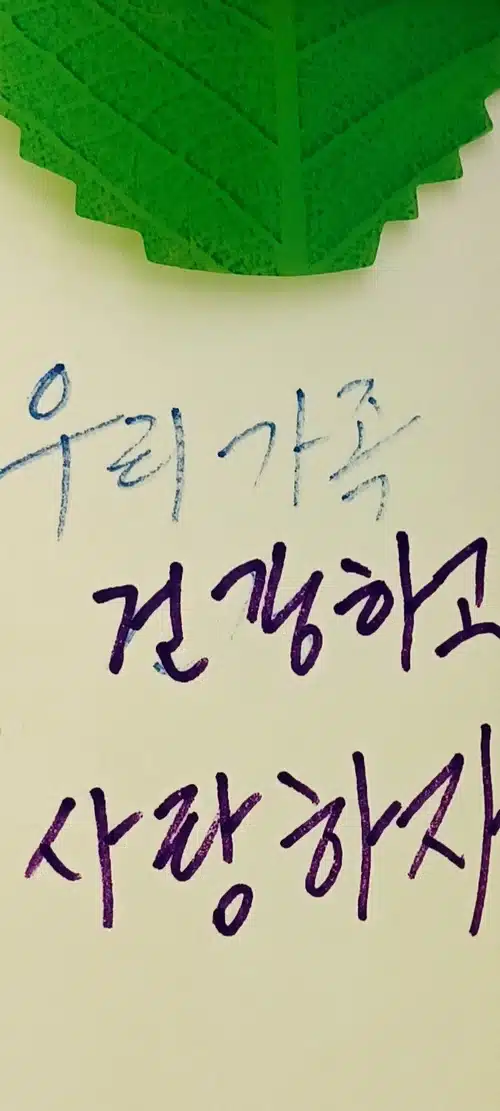 우리 가족
건강하고
사랑하자